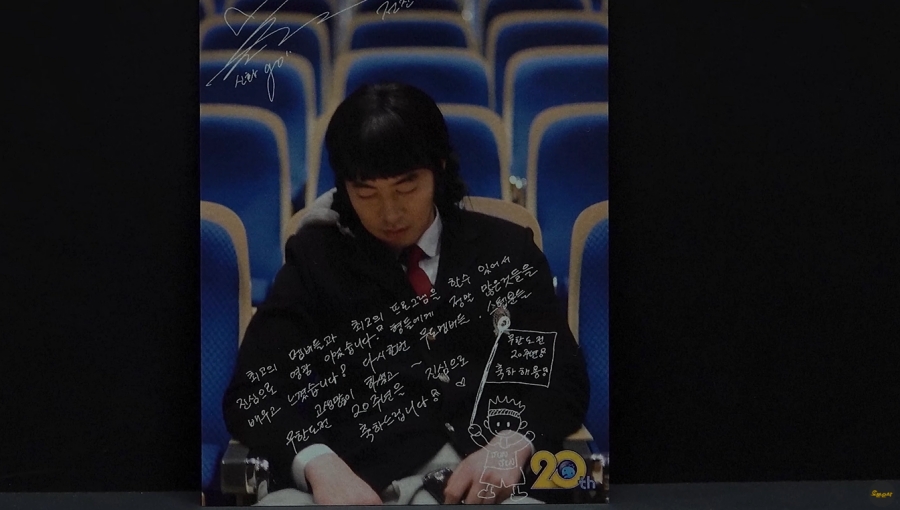 전진
신화
go!!
최고의 멤버들과 최고의 프로그램을 할수 있어서
진심으로 영광 이었습니다! 형들에게 정말 많은것들을
배우고 느꼈습니다! 다시한번 무도멤버들.. 스탭분들
고생많이 하셨고 ~
무한도전 20주년을 진심으로
축하드립니다!
무한도전
20주년!
축하해용!
JUN
JIN
20th